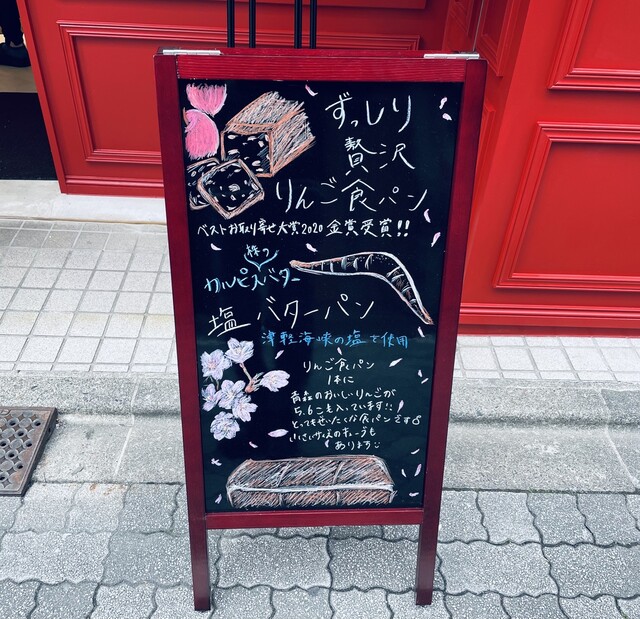 ずっしり
贅沢
りんご食パン
ベストお取り寄せ大賞2020 金賞受賞!!
株の
カルピスバター
塩 バターパン
津軽海峡の塩で使用
りんご食パン
1本に
青森のおいしいりんごが
5.6こも入っています!!
とってもぜいたくな食パンです
いさいサイズのキューブも
あります